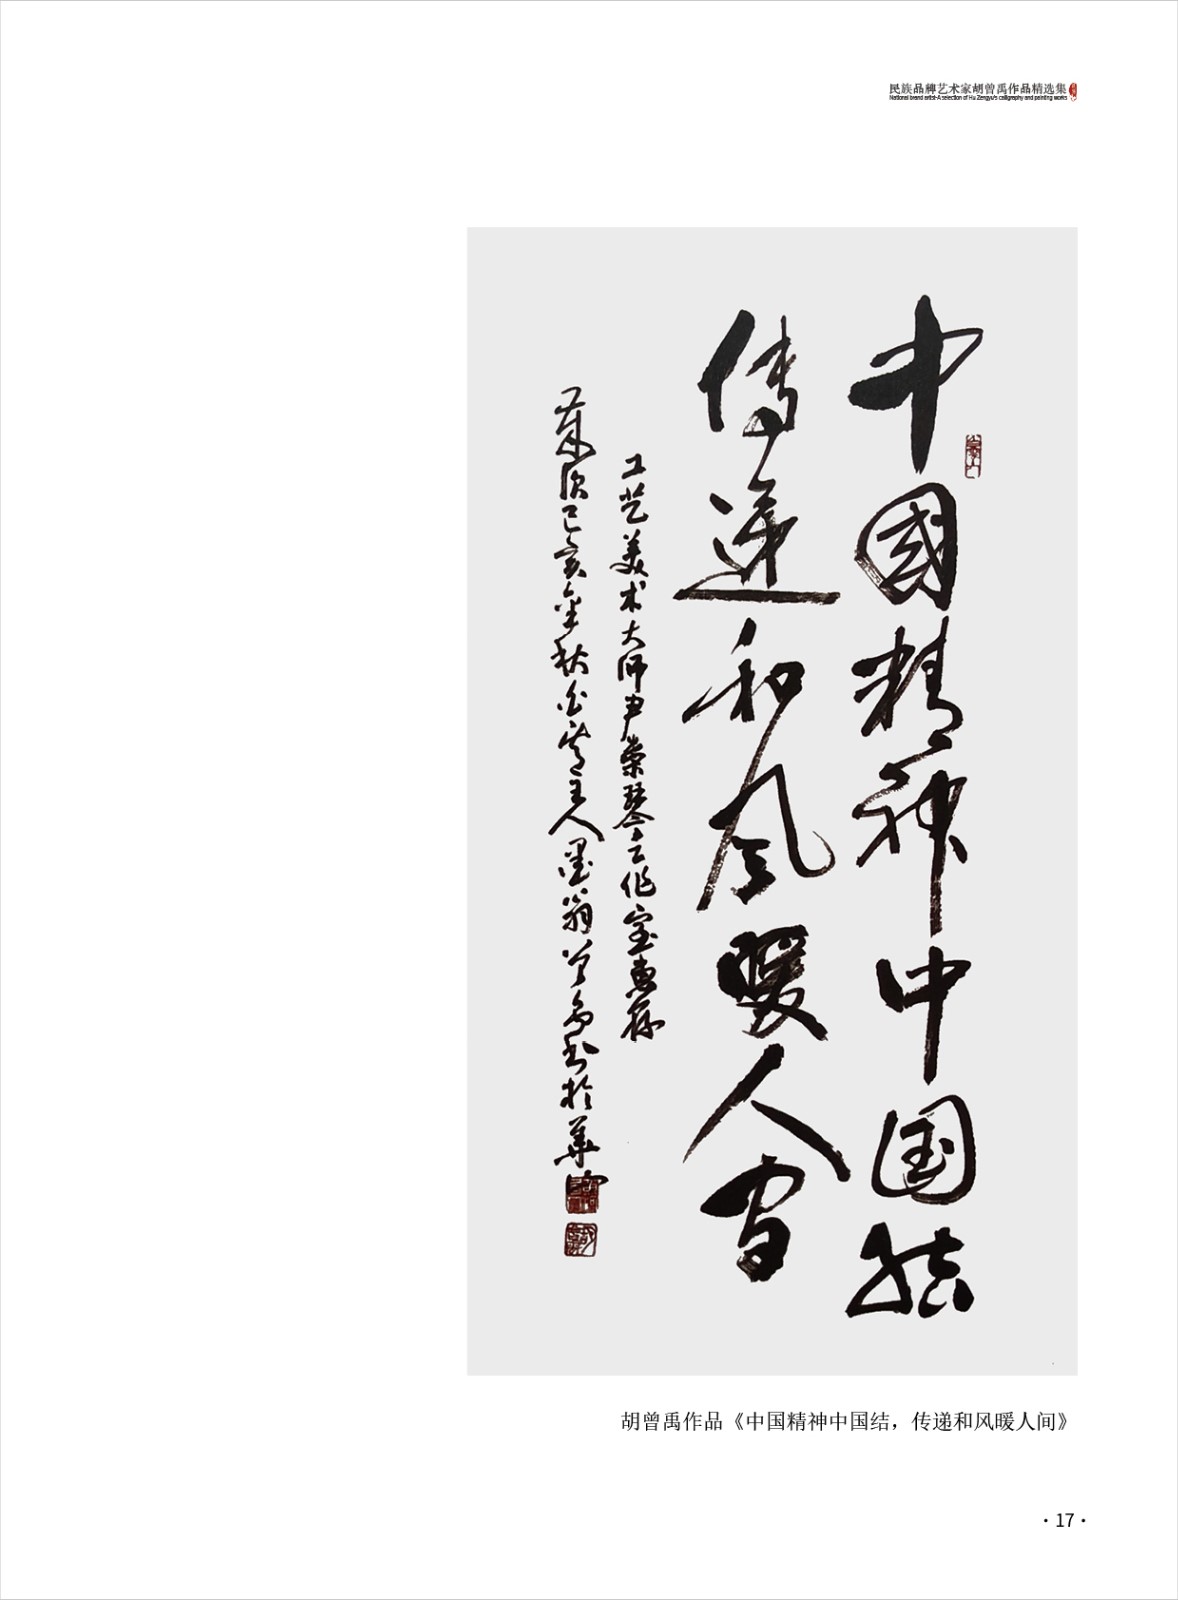 民族品牌艺术家胡曾禹作品精选集
National brand artist-A selection of Hu Zengyu's calligraphy and painting works
中國精神中国结
传递和风暖人间
工艺美术大师尹崇琴工作室惠存
岁次己亥年秋 主人墨翁曾禹书於華
胡曾禹作品《中国精神中国结，传递和风暖人间》
·17·